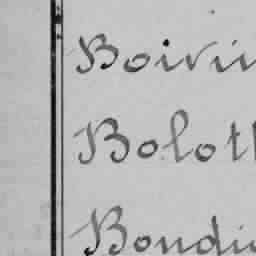 Boivi
Bolot
Bondi